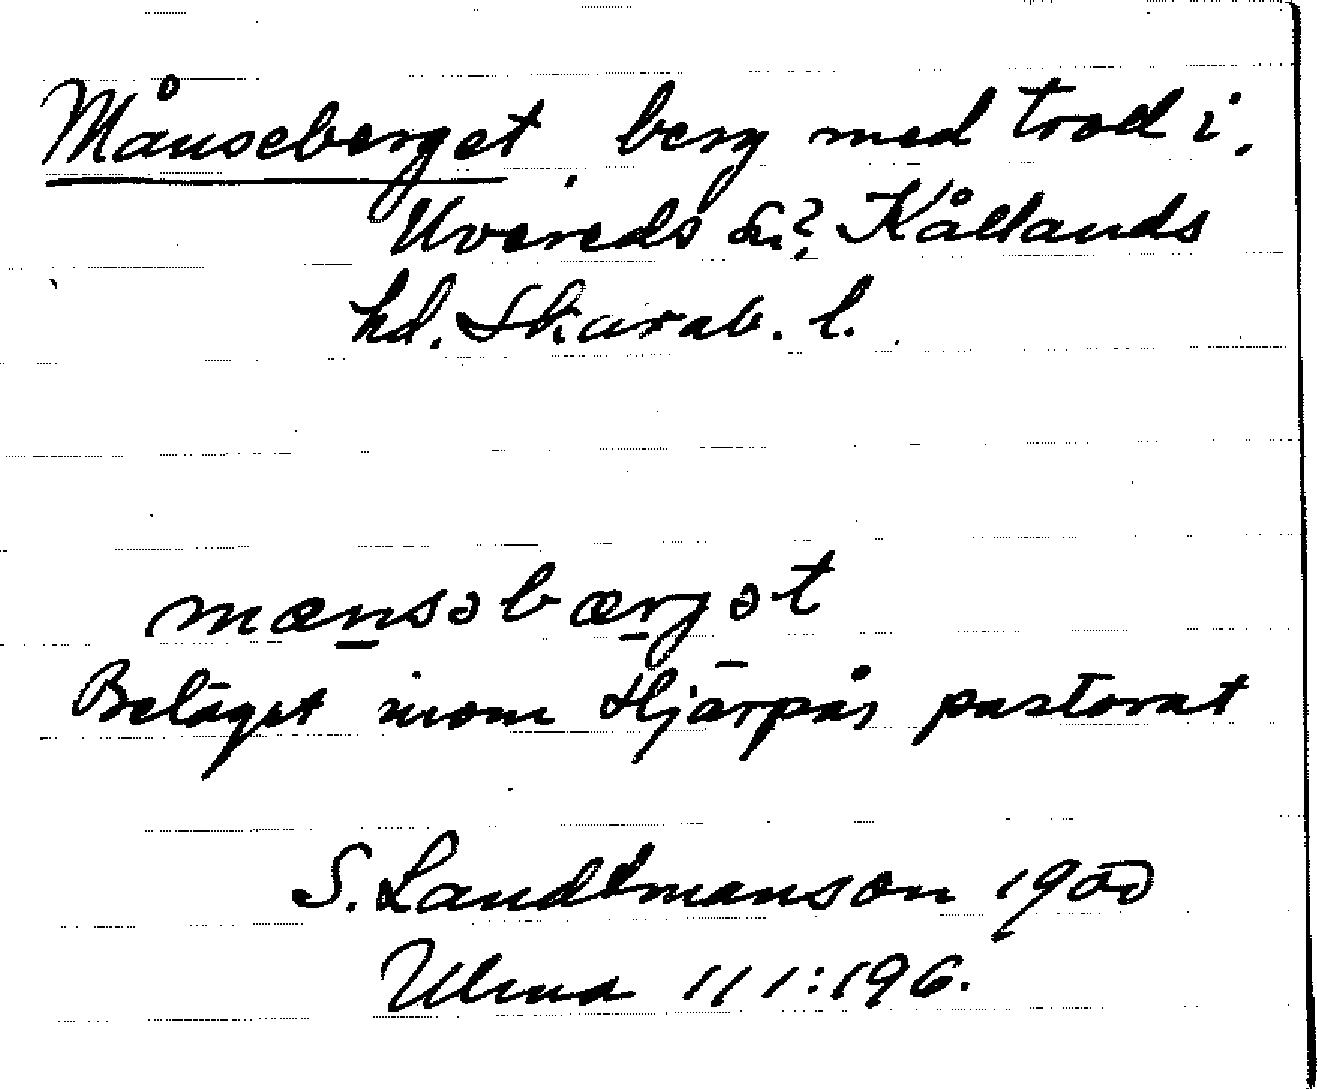 Månseberget berg med troll i,
Uvereds sn? Kållands
hd. Skarab. l.
mænsəbærgət
Beläget inom Hjärpås pastorat
S. Landtmanson 1900
Ulma 111:196.